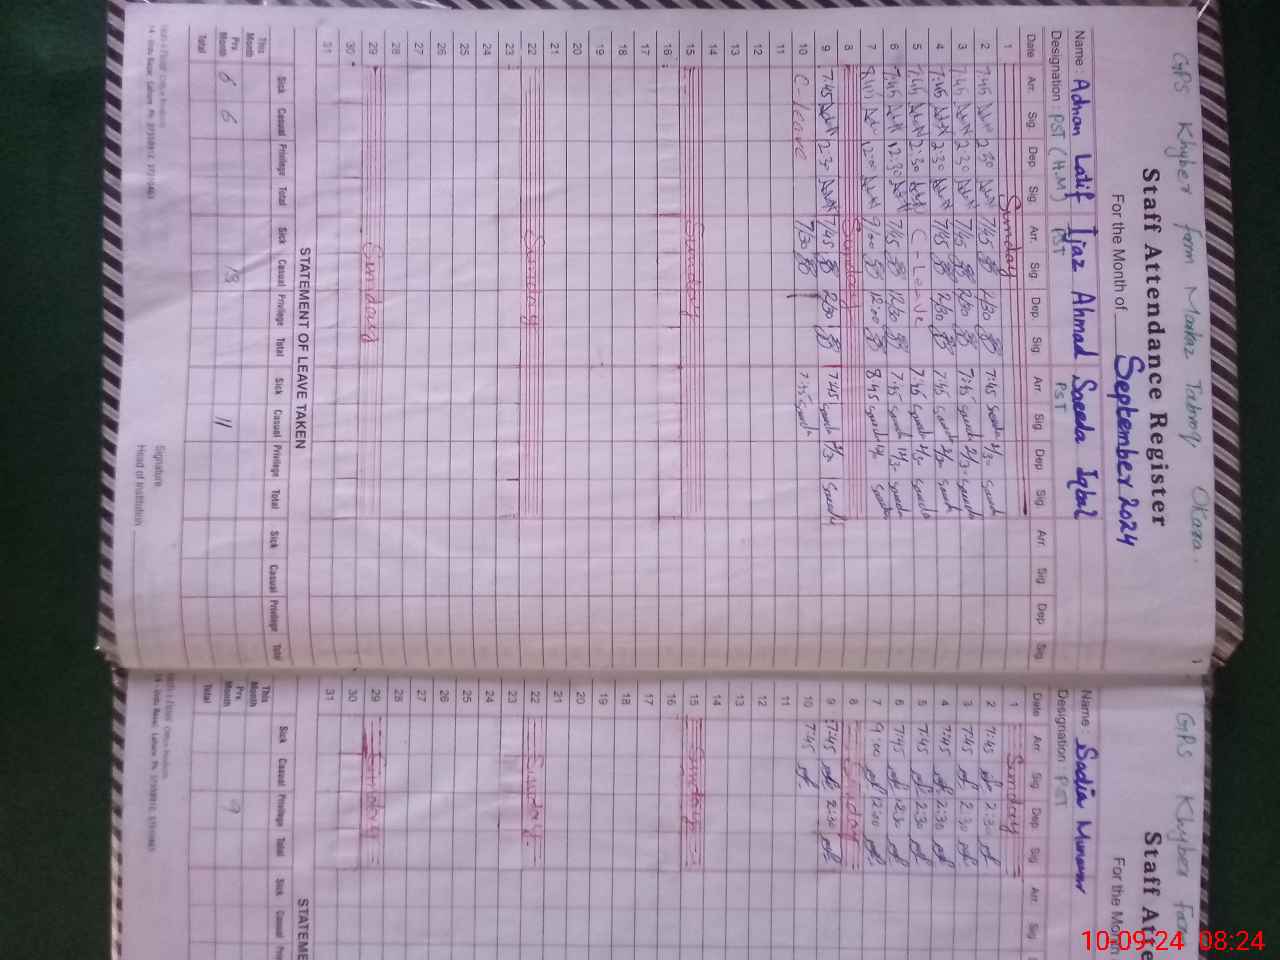 GPS Khyber farm Markaz Tabroq Okara.
Staff Attendance Register
For the Month of September 2024
Name: Adnan Latif Ijaz Ahmad Saeeda Iqbal
Designation: PST (H.M) PST PST
Date Arr. Sig. Dep. Sig. Arr. Sig. Dep. Sig. Arr. Sig. Dep. Sig. Arr. Sig. Dep. Sig.
1 Sunday
2 7:45 2:30 7/45 2/30 7:45 2/30
3 7:45 2:30 7/45 2/30 7:45 2/30
4 7:45 2:30 7/45 2/30 7:45 2/30
5 7:45 2:30 C-Leave 7:45 2/30
6 7:45 12:30 7/45 12/30 7:45 12/30
7 12:00 9/00 12:00 8:45
8 Sunday
9 7:45 2:30 7/45 2/30 7:45 2/30
10 C-leave 7/30 7:45
11
12
13
14
15 Sunday
16
17
18
19
20
21
22 Sunday
23
24
25
26
27
28
29 Sunday
30
31
STATEMENT OF LEAVE TAKEN
Sick Casual Privilege Total Sick Casual Privilege Total Sick Casual Privilege Total Sick Casual Privilege Total
This Month
Prv. Month 6 6 13 11
Total
Signature
Head of Institution
GPS Khyber Far
Staff Atte
For the Month
Name: Sadia Munawar
Designation PST
Date Arr. Sig. Dep. Sig. Arr. Sig.
1 Sunday
2 7:45 2:30
3 7:45 2:30
4 7:45 2:30
5 7:45 2:30
6 7:45 12:30
7 9:00 12:00
8 Sunday
9 7:45 2:30
10 7:45
11
12
13
14
15 Sunday
16
17
18
19
20
21
22 Sunday
23
24
25
26
27
28
29 Sunday
30
31
STATEME
Sick Casual Privilege Total Sick Casual
This Month
Prv. Month 9
Total
10-09-24 08:24